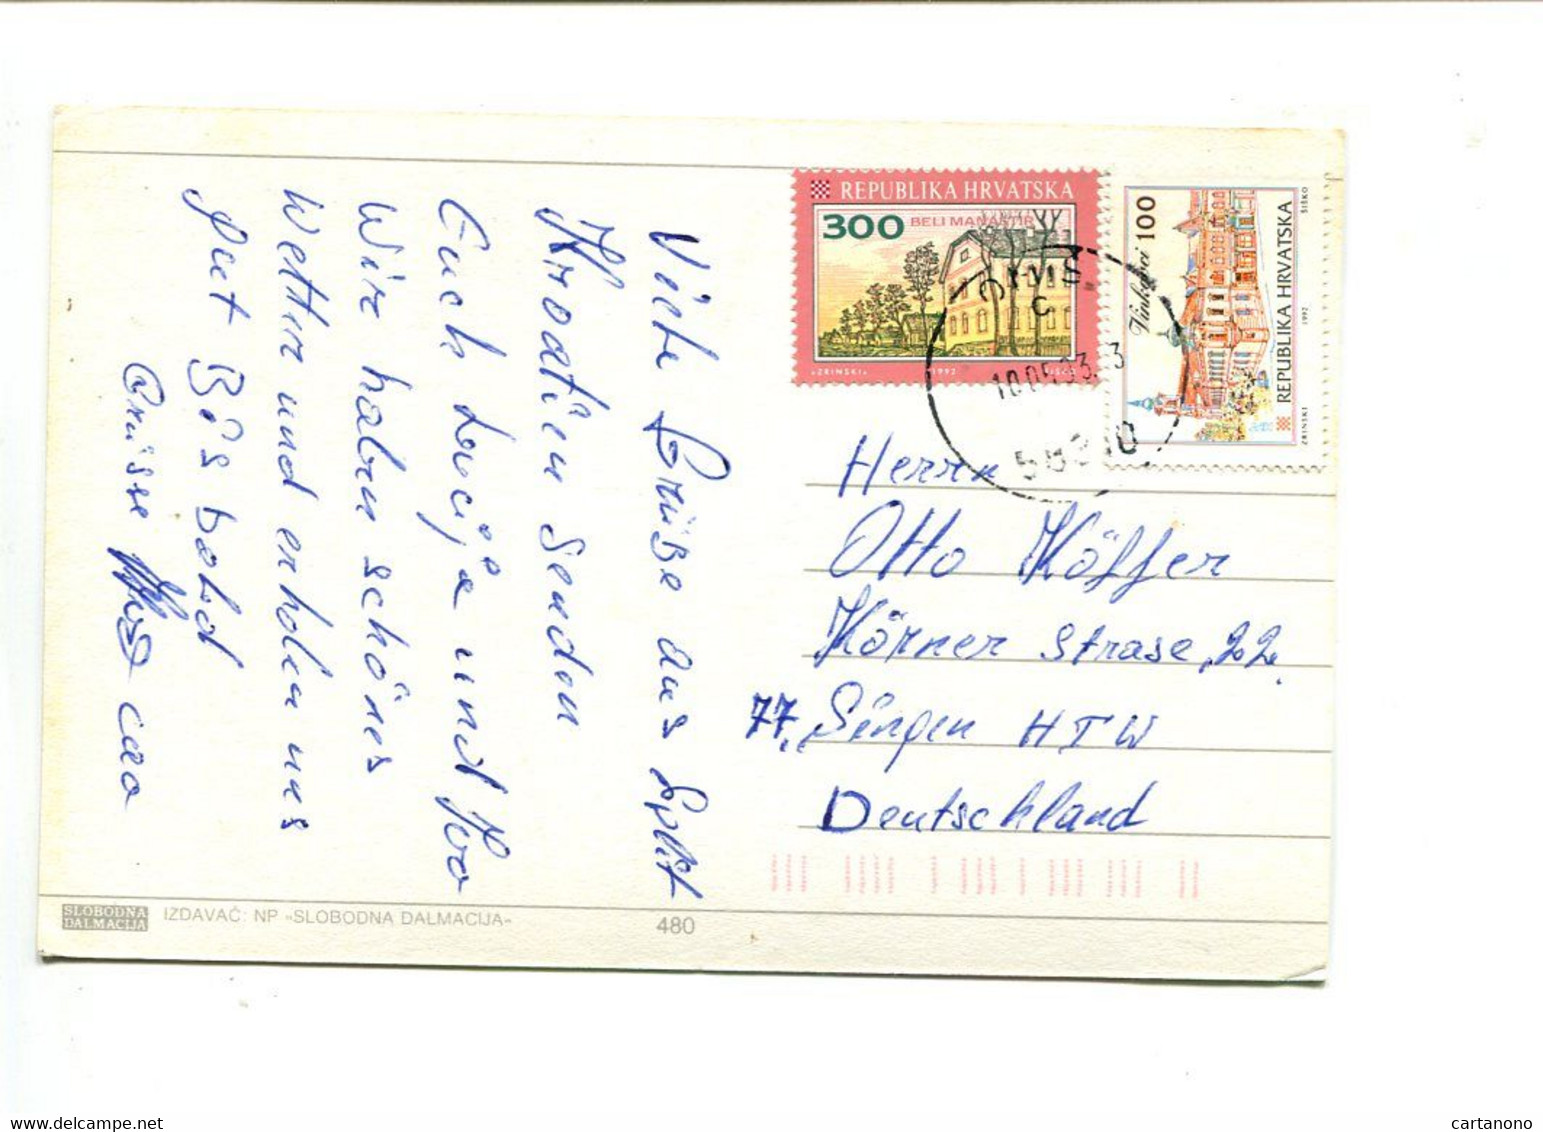 Viele Grüße aus Split
Kroatien senden
Euch Lucija und Ivo
Wir haben schönes
Wetter und erholen uns
gut Bis bald
Grüsse ciao
REPUBLIKA HRVATSKA
300 BELI MANASTIR
"ZRINSKI" 1992 ŠIŠKO
Vinkovci 100
REPUBLIKA HRVATSKA
ZRINSKI 1992 ŠIŠKO
10.05.93
Herrn
Otto Köffer
Körner Strase 22.
77 Singen HTW
Deutschland
SLOBODNA
DALMACIJA
IZDAVAČ: NP »SLOBODNA DALMACIJA«
480
cartanono